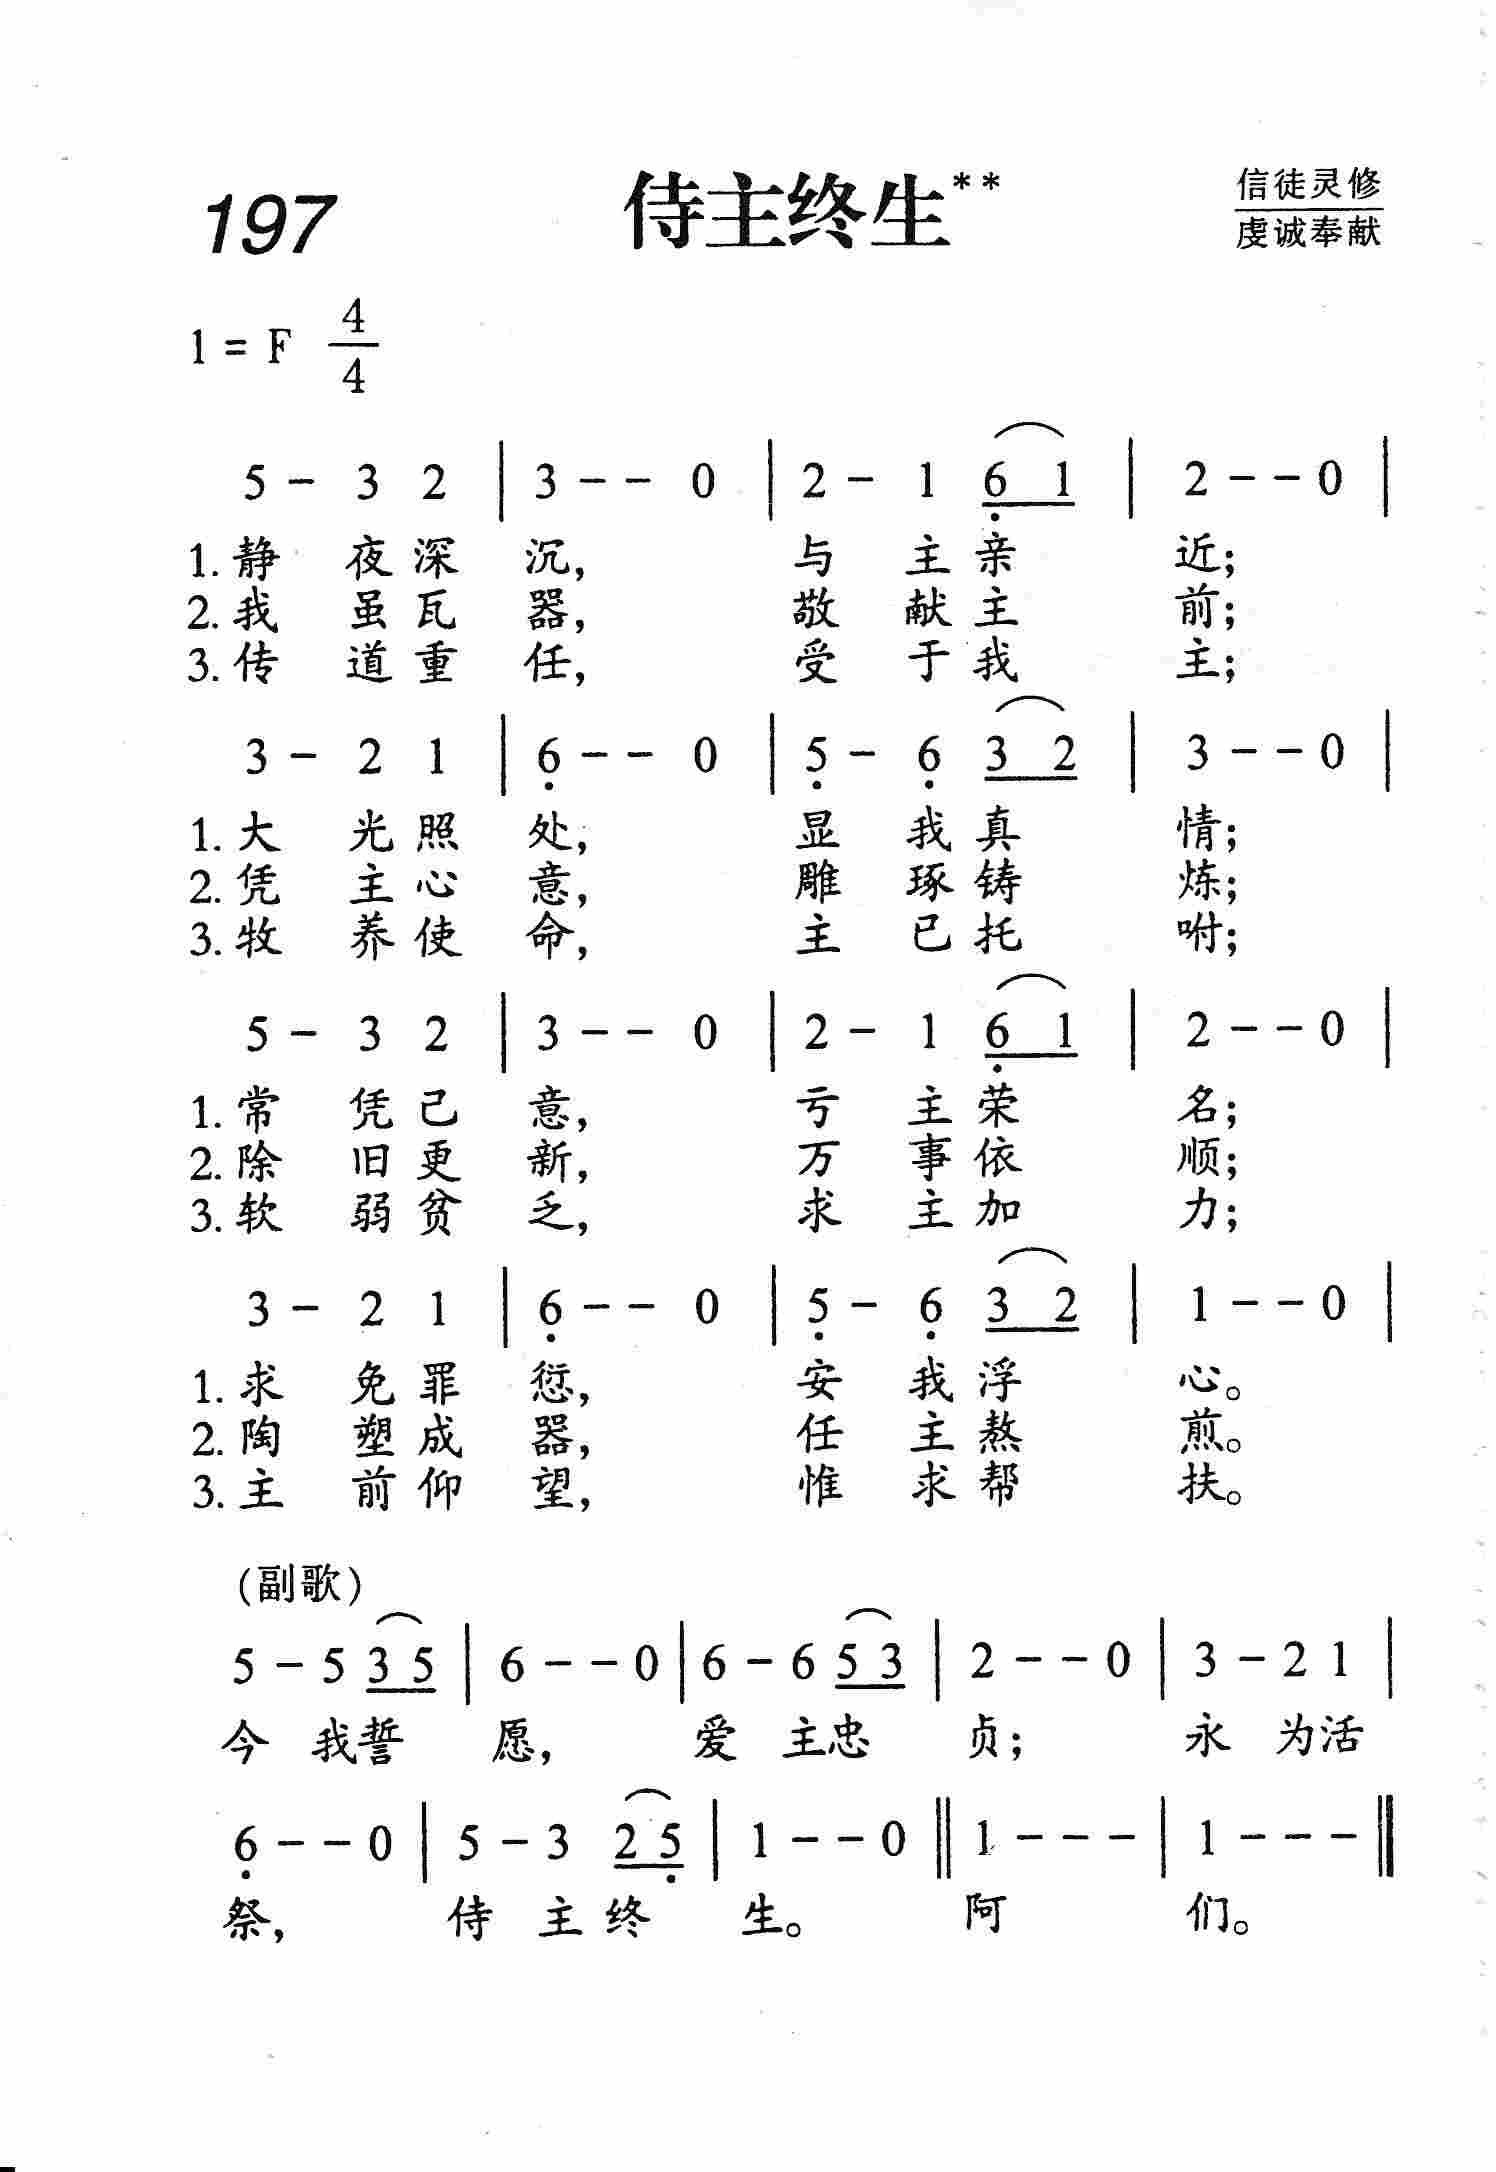 197 侍主终生** 信徒灵修
虔诚奉献
1 = F 4/4
5 - 3 2 | 3 - - 0 | 2 - 1 6̣ 1 | 2 - - 0 |
1. 静 夜 深 沉, 与 主 亲 近;
2. 我 虽 瓦 器, 敬 献 主 前;
3. 传 道 重 任, 受 于 我 主;
3 - 2 1 | 6̣ - - 0 | 5̣ - 6̣ 3 2 | 3 - - 0 |
1. 大 光 照 处, 显 我 真 情;
2. 凭 主 心 意, 雕 琢 铸 炼;
3. 牧 养 使 命, 主 已 托 咐;
5 - 3 2 | 3 - - 0 | 2 - 1 6̣ 1 | 2 - - 0 |
1. 常 凭 己 意, 亏 主 荣 名;
2. 除 旧 更 新, 万 事 依 顺;
3. 软 弱 贫 乏, 求 主 加 力;
3 - 2 1 | 6̣ - - 0 | 5̣ - 6̣ 3 2 | 1 - - 0 |
1. 求 免 罪 愆, 安 我 浮 心。
2. 陶 塑 成 器, 任 主 熬 煎。
3. 主 前 仰 望, 惟 求 帮 扶。
(副歌)
5 - 5 3 5 | 6 - - 0 | 6 - 6 5 3 | 2 - - 0 | 3 - 2 1 |
今 我 誓 愿, 爱 主 忠 贞; 永 为 活
6̣ - - 0 | 5 - 3 2 5̣ | 1 - - 0 ‖ 1 - - - | 1 - - - ‖
祭, 侍 主 终 生。 阿 们。